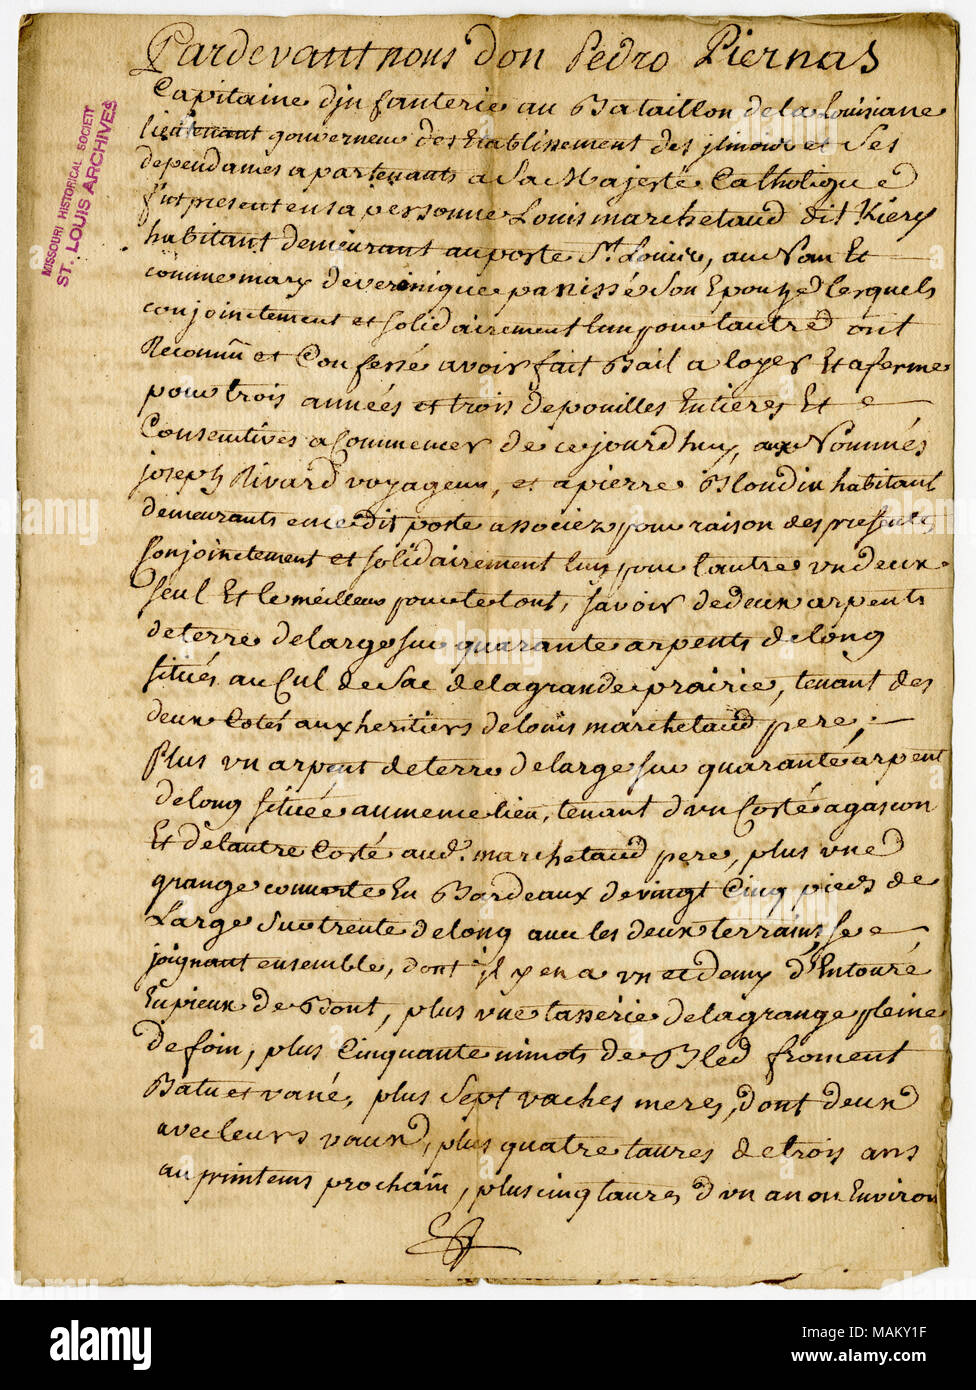 Pardevant nous don Pedro Piernas
Capitaine d'jnfanterie au Bataillon de la Louisiane
lieutenant gouverneur des Etablissement des jlinois et Ses
dependames apartenants a Sa Majesté Catholique
fut present en sa personne Louis marchetaud dit Kiery
habitant demeurant au poste St. Louis, au Nom Et
comme mary de veronique panissé Son Epouze lesquels
conjoinctement et solidairement lun pour lautre ont
Reconnu et Confessé avoir fait Bail a loyer Et aferme
pour trois années et trois depouilles Entieres Et
Consecutives a Commencer de ce jourdhuy, aux Nommés
joseph Rivard voyageur, et a pierre Blondin habitant
demeurants en ce dit poste associez pour raison des presentes
Conjoinctement et solidairement lun pour lautre un deux
seul Et le meilleur pour le tout, savoir de deux arpents
de terre de large sur quarante arpents de long
situés au Cul de Sac de la grande prairie, tenant des
deux Cotés aux heritiers de louis marchetaud pere;
Plus un arpent de terre de large sur quarante arpent
de long située au meme lieu, tenant d'un Costé a gascon
Et d'elautre Costé aud. marchetaud pere, plus une
grange couverte En Bardeaux de vingt Cinq pieds de
Large Sur trente de long avec les deux terrains se
joignant ensemble, dont il y en a un et demy d'Entouré
En pieux de Bout, plus une tasserie de la grange pleine
de foin, plus Cinquante minots de Bled froment
Batu et vané, plus Sept vaches meres, dont deux
avec leurs vaux, plus quatre taures de trois ans
au printems prochain, plus cinq taures d'un an ou Environ
MISSOURI HISTORICAL SOCIETY
ST. LOUIS ARCHIVES
alamy
Image ID: MAKY1F
www.alamy.com